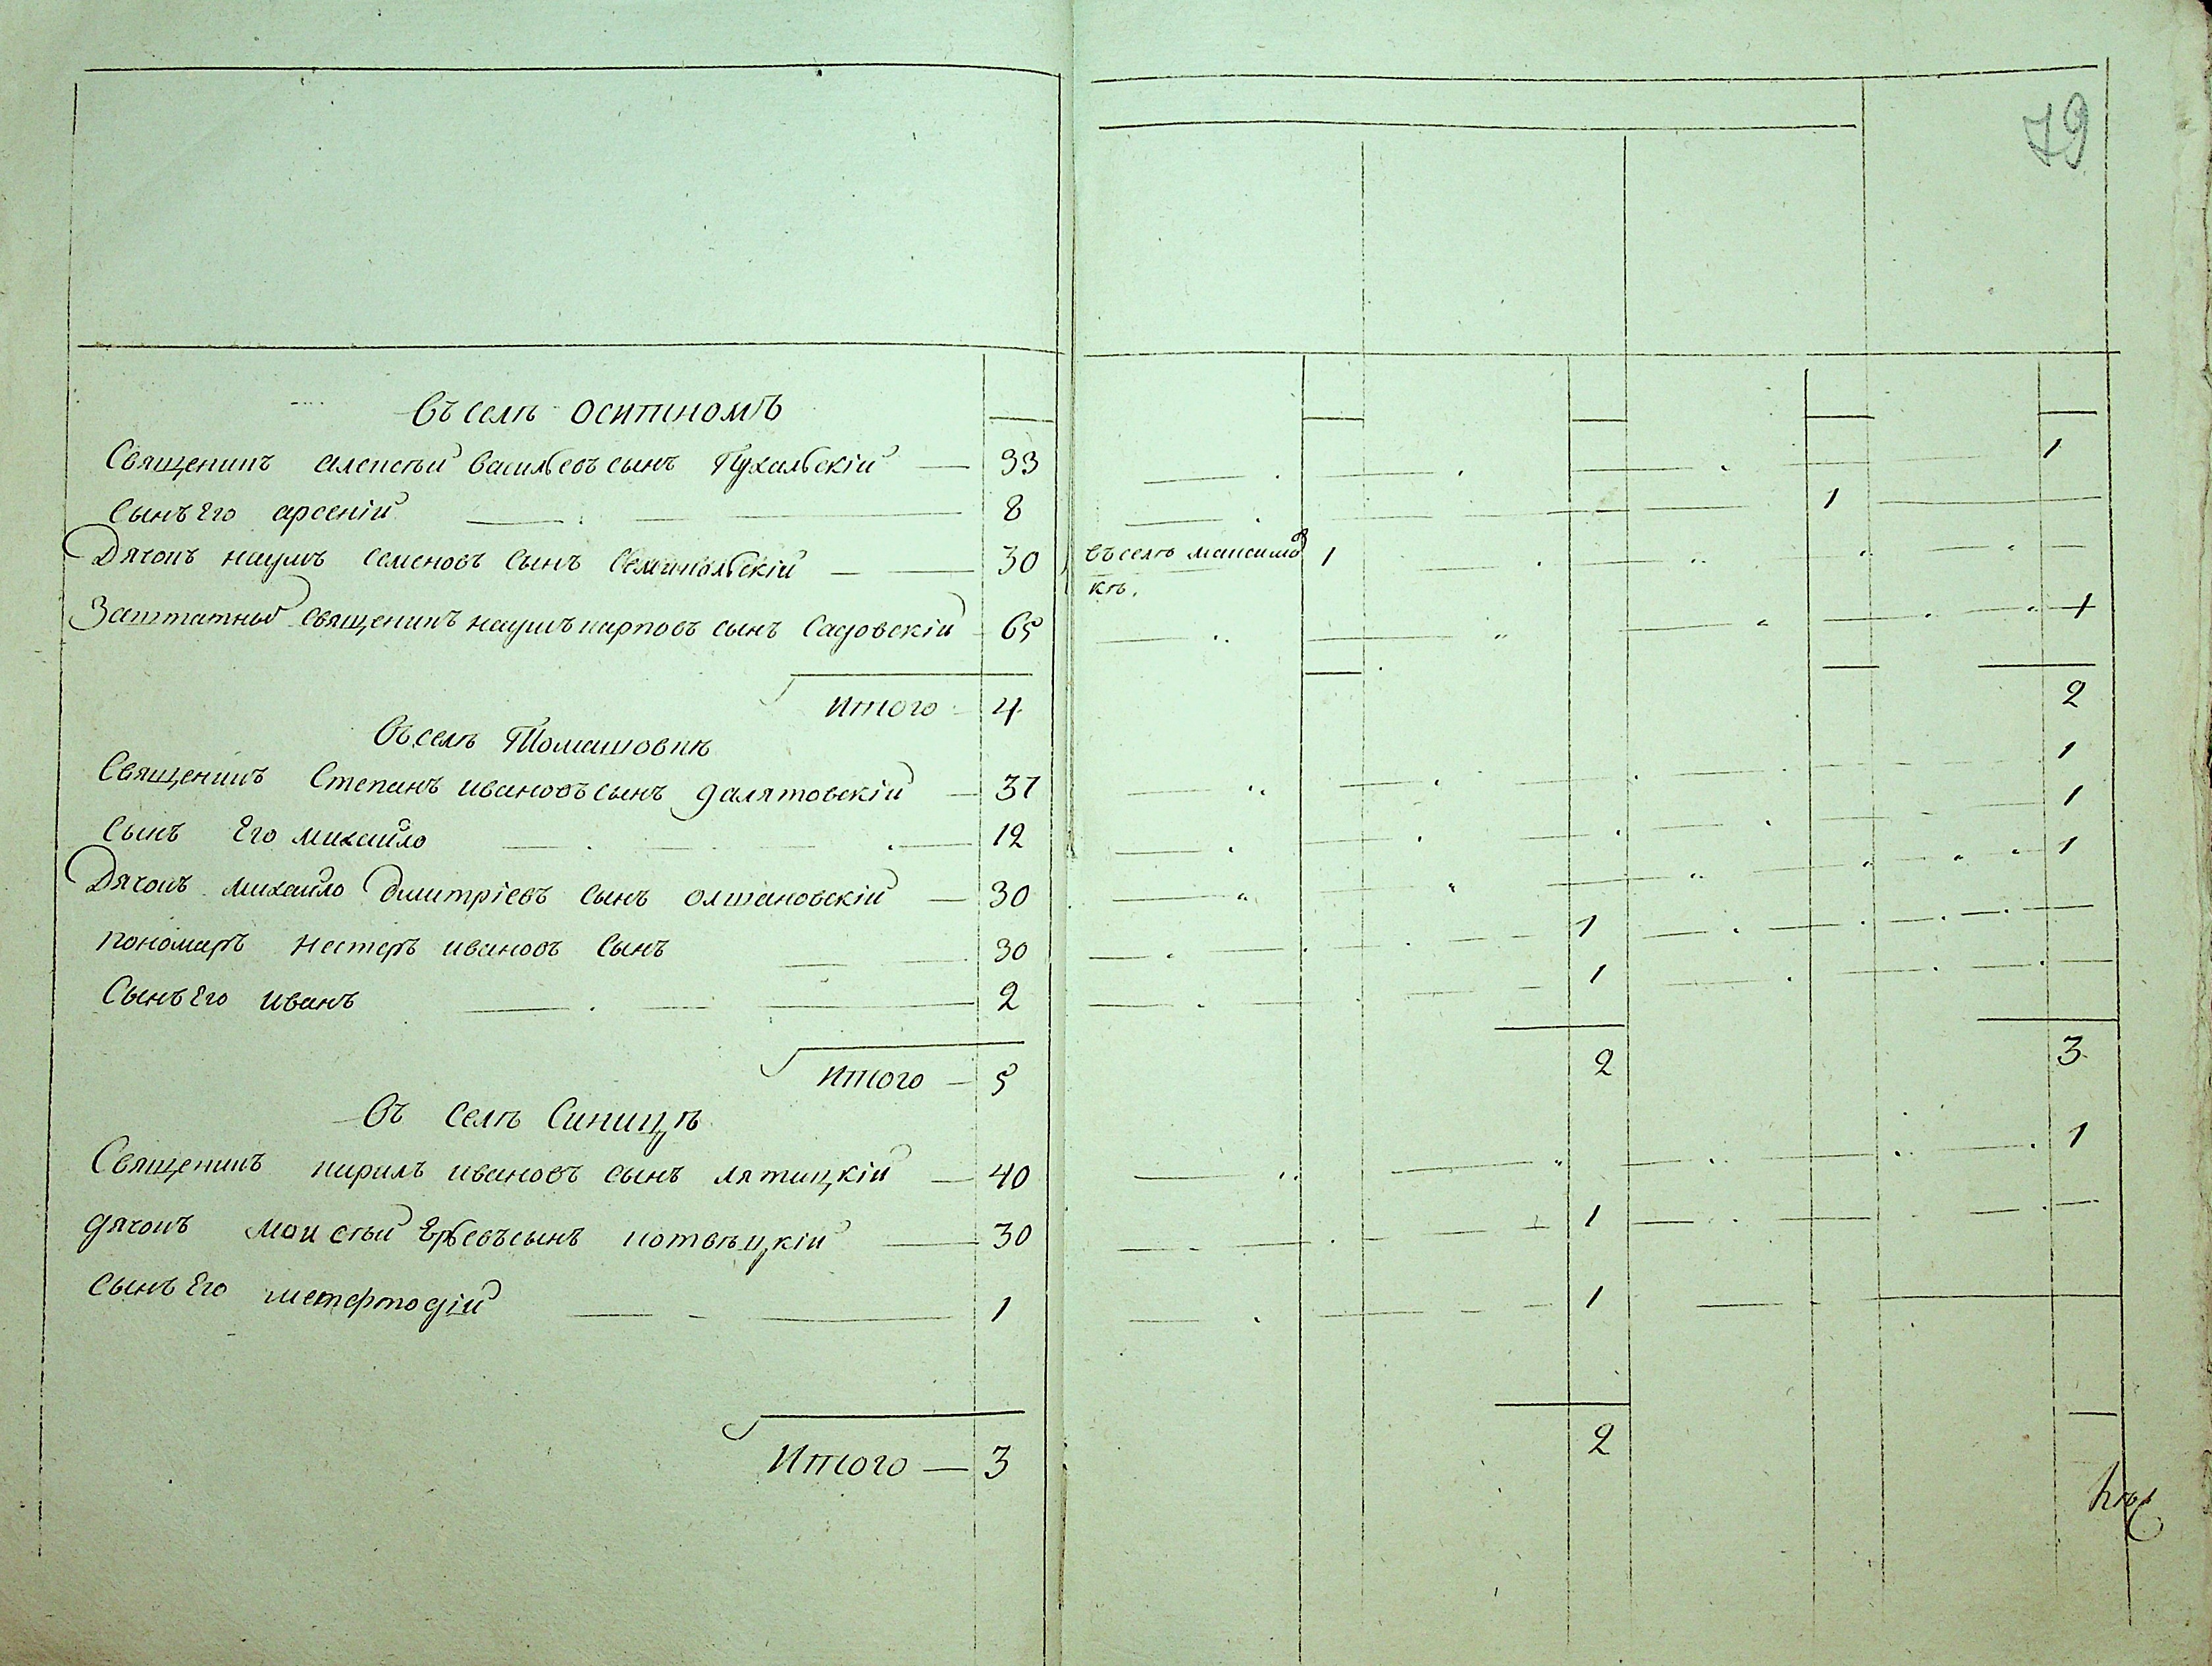 79
Въ селѣ Оситномъ
Священикъ алексѣй Васильевъ сынъ Пухальскій — 33 1
Сынъ Его арсеній 8 1
Дячокъ наумъ Семеновъ Сынъ — 30 въ селѣ максимов 1
кѣ.
Заштатный Священикъ наумъ карповъ сынъ Садовскій 65 1
Итого 4 2
Въ селѣ Томашовкѣ
Священикъ Степанъ ивановъ сынъ далятовскій — 37 1
Сынъ Его михайло 12 1
Дячокъ михайло дмитріевъ сынъ олшановскій — 30 1
пономаръ нестеръ ивановъ Сынъ 30 1
Сынъ Его иванъ 2 1
Итого — 5 2 3
Въ Селѣ Синицѣ
Священикъ кирилъ ивановъ сынъ лятицкій — 40 1
дячокъ моисѣй сынъ котвѣцкій — 30 1
Сынъ Его 1 1
Итого — 3 2